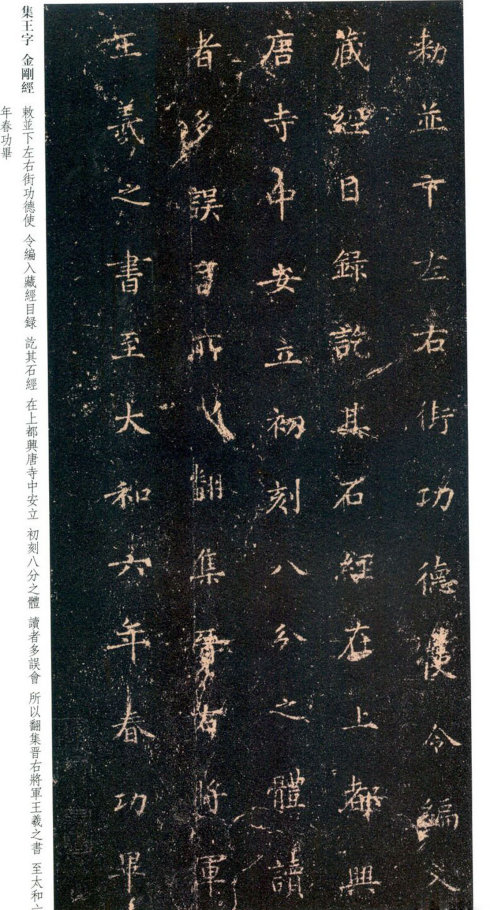 勅並下左右街功德使令編入
藏經目錄訖其石經在上都興
唐寺中安立初刻八分之體讀
者多誤會所以翻集晉右將軍
王羲之書至大和六年春功畢
集王字 金剛經 敕並下左右街功德使 令編入藏經目録 訖其石經 在上都興唐寺中安立 初刻八分之體 讀者多誤會 所以翻集晋右將軍王羲之書 至太和六
年春功畢